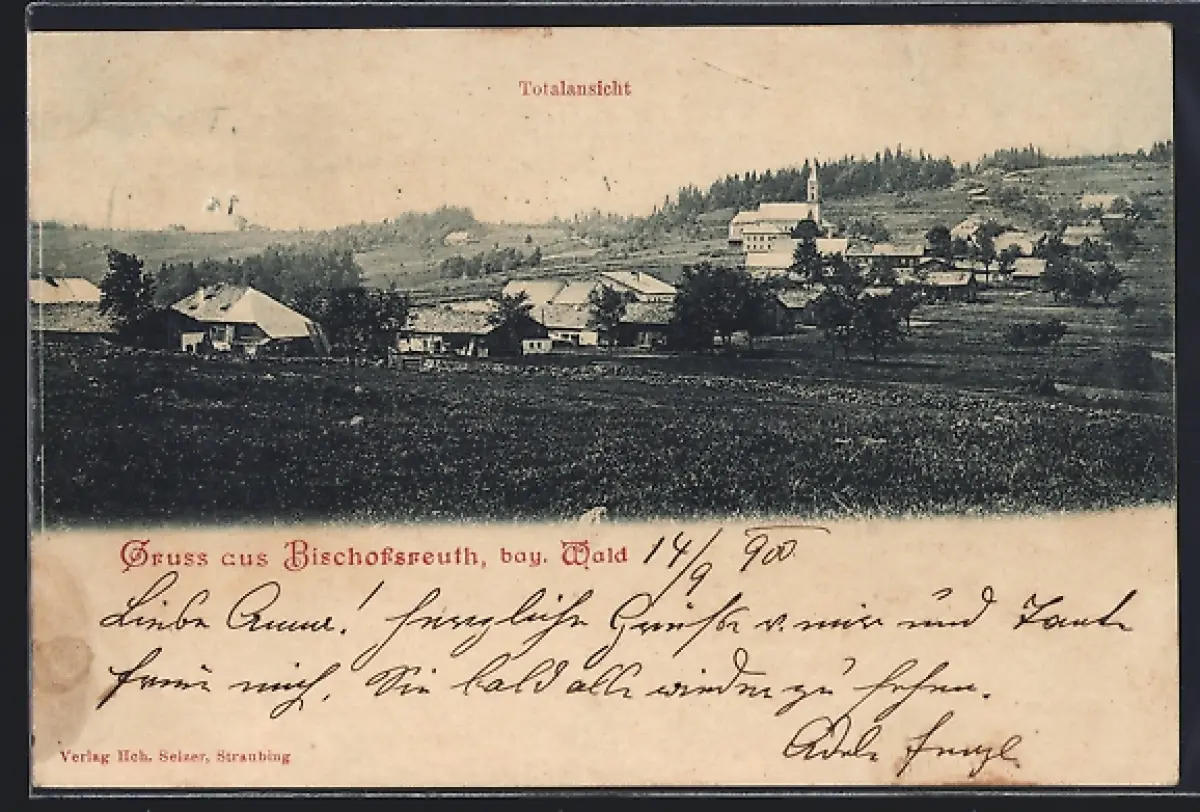 Totalansicht
Gruss aus Bischofsreuth, bay. Wald 14/9 900
Liebe Anna! herzliche Grüße v. mir und Tante
freue mich, Sie bald alle wieder zu sehen.
Adele
Verlag Hch. Selzer, Straubing